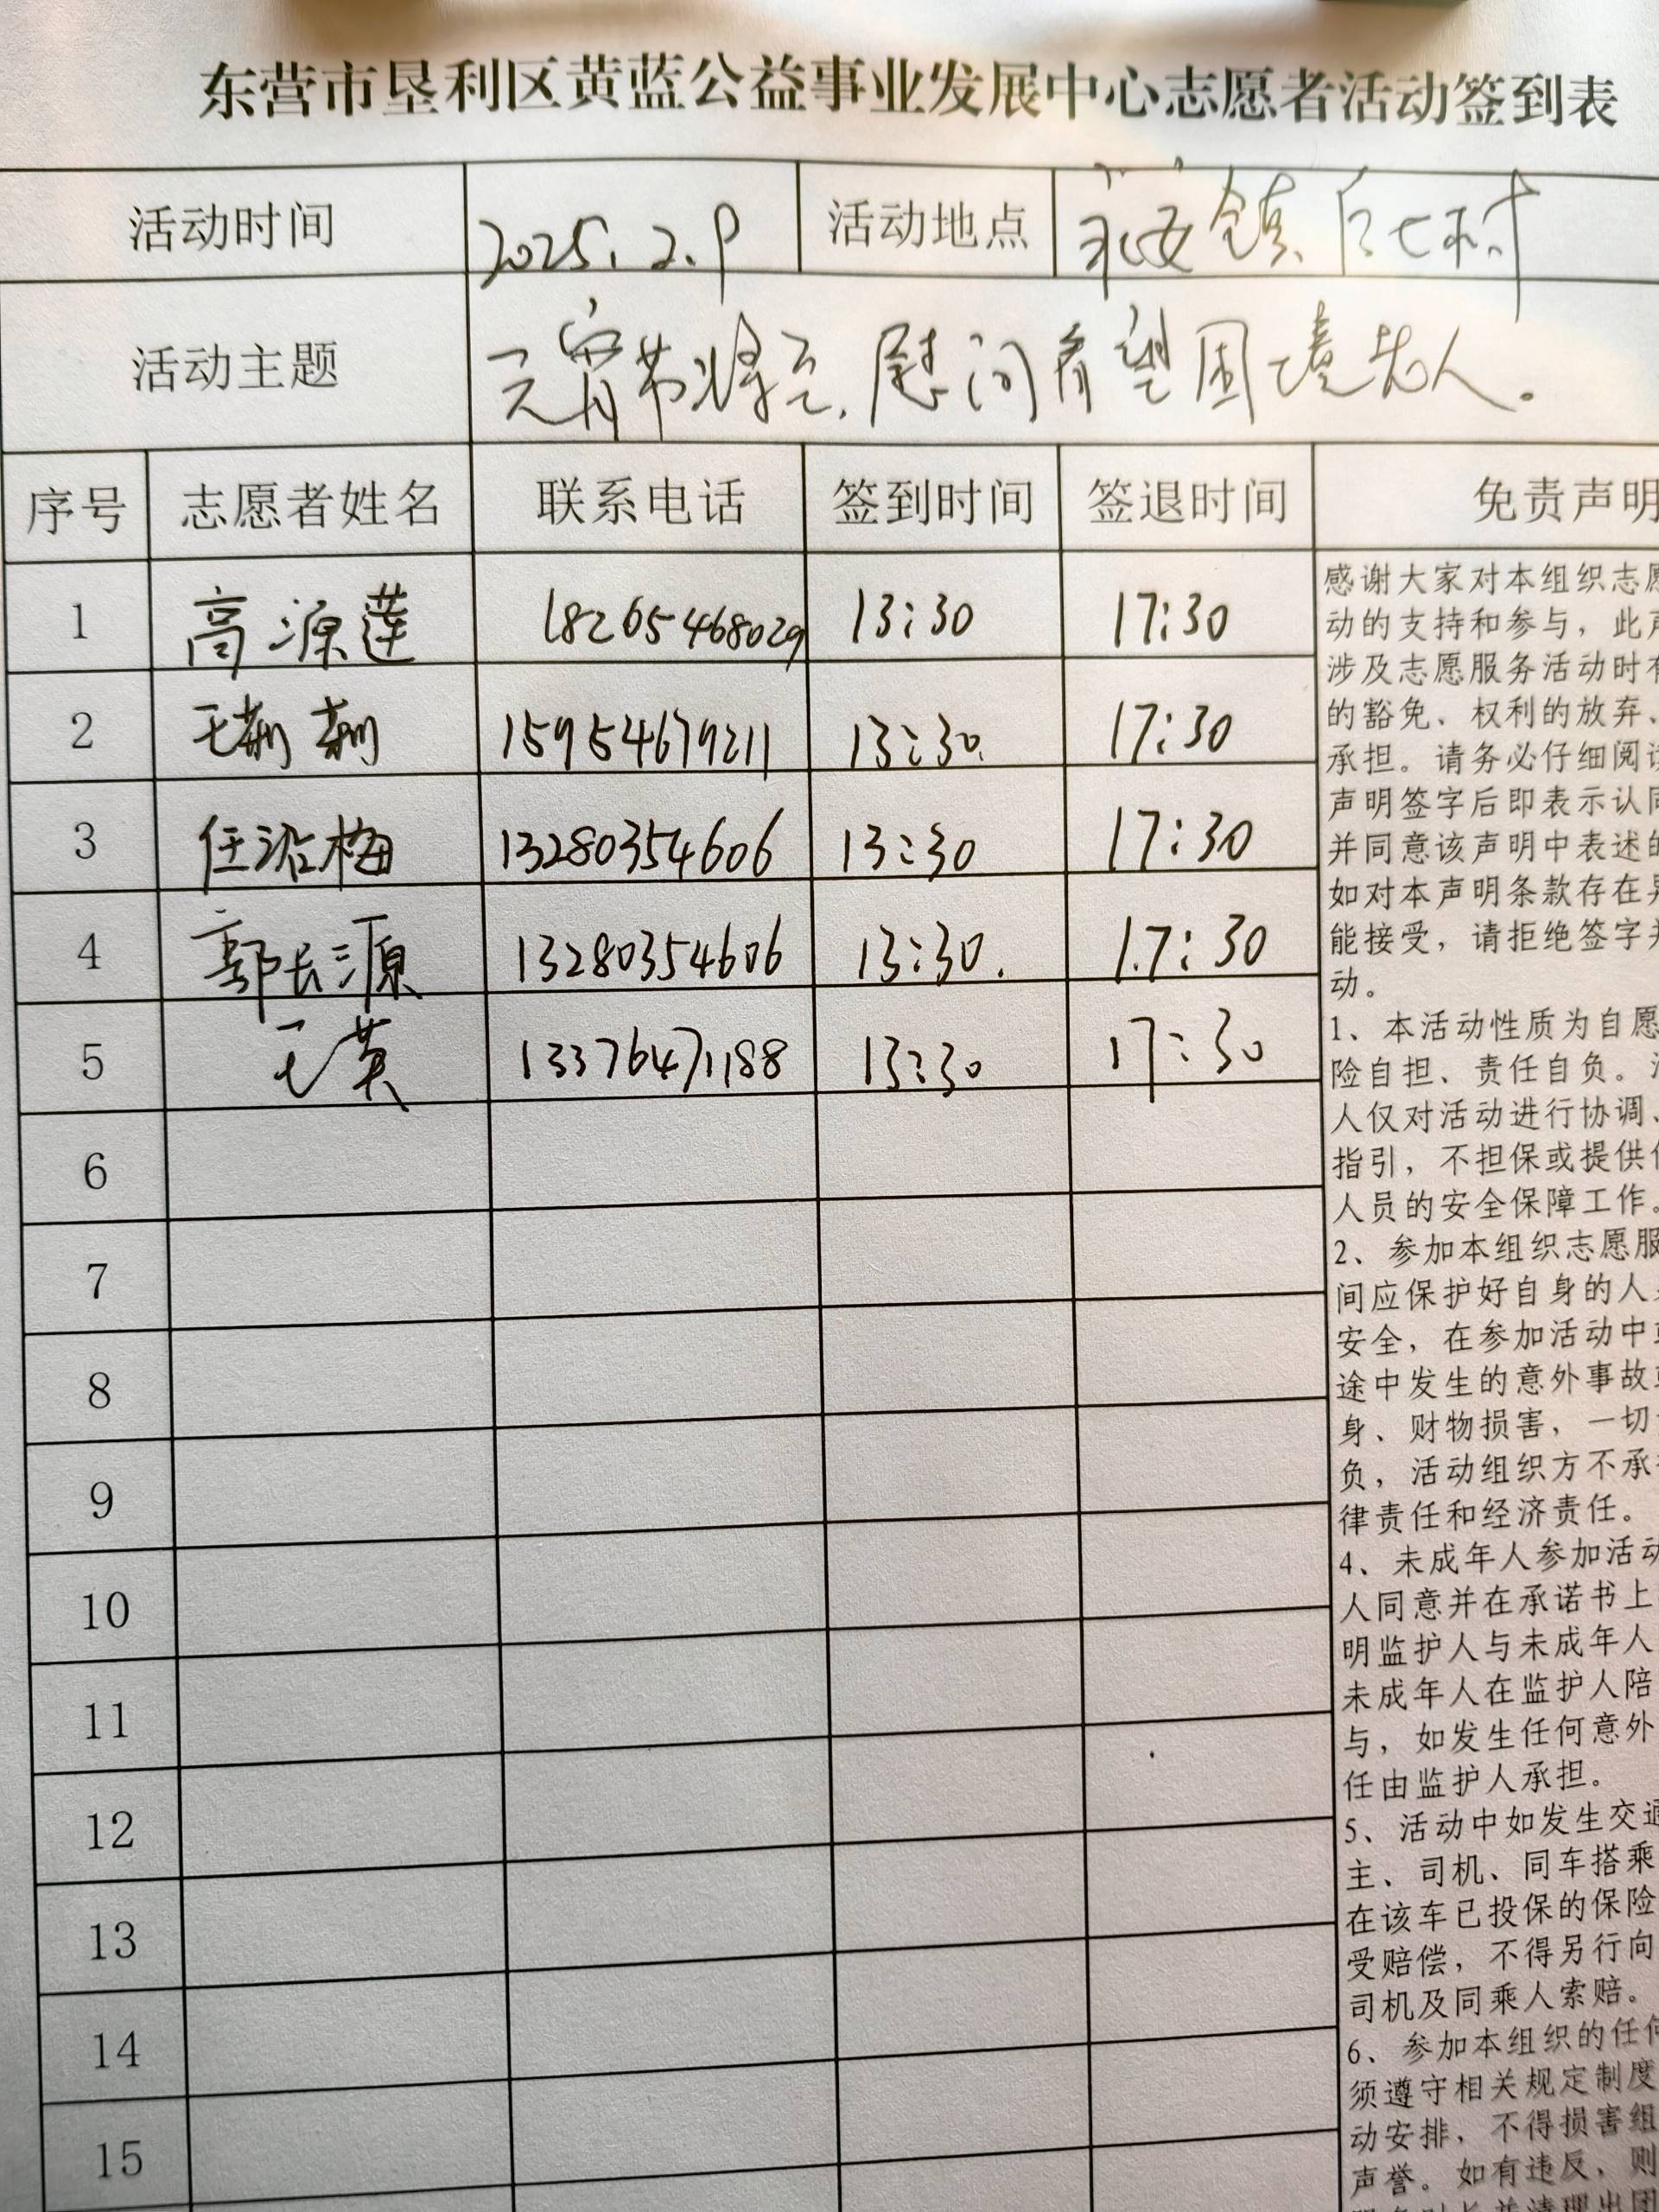 东营市垦利区黄蓝公益事业发展中心志愿者活动签到表
活动时间 2025.2.9 活动地点 永安镇后七村
活动主题 元宵节将至,慰问看望困境老人。
序号 志愿者姓名 联系电话 签到时间 签退时间 免责声明
1 高源莲 18265468029 13:30 17:30
2 王荆荆 15954679211 13:30 17:30
3 任沿梅 13280354606 13:30 17:30
4 郭长源 13280354606 13:30. 17:30
5 王英 13376471188 13:30 17:30
6
7
8
9
10
11
12
13
14
15
感谢大家对本组织志愿
动的支持和参与,此声
涉及志愿服务活动时有
的豁免、权利的放弃、
承担。请务必仔细阅读
声明签字后即表示认同
并同意该声明中表述的
如对本声明条款存在异
能接受,请拒绝签字并
动。
1、本活动性质为自愿
险自担、责任自负。活
人仅对活动进行协调、
指引,不担保或提供任
人员的安全保障工作。
2、参加本组织志愿服
间应保护好自身的人身
安全,在参加活动中或
途中发生的意外事故或
身、财物损害,一切
负,活动组织方不承担
律责任和经济责任。
4、未成年人参加活动
人同意并在承诺书上
明监护人与未成年人
未成年人在监护人陪
与,如发生任何意外
任由监护人承担。
5、活动中如发生交通
主、司机、同车搭乘
在该车已投保的保险
受赔偿,不得另行向
司机及同乘人索赔。
6、参加本组织的任何
须遵守相关规定制度
动安排,不得损害组
声誉。如有违反,则